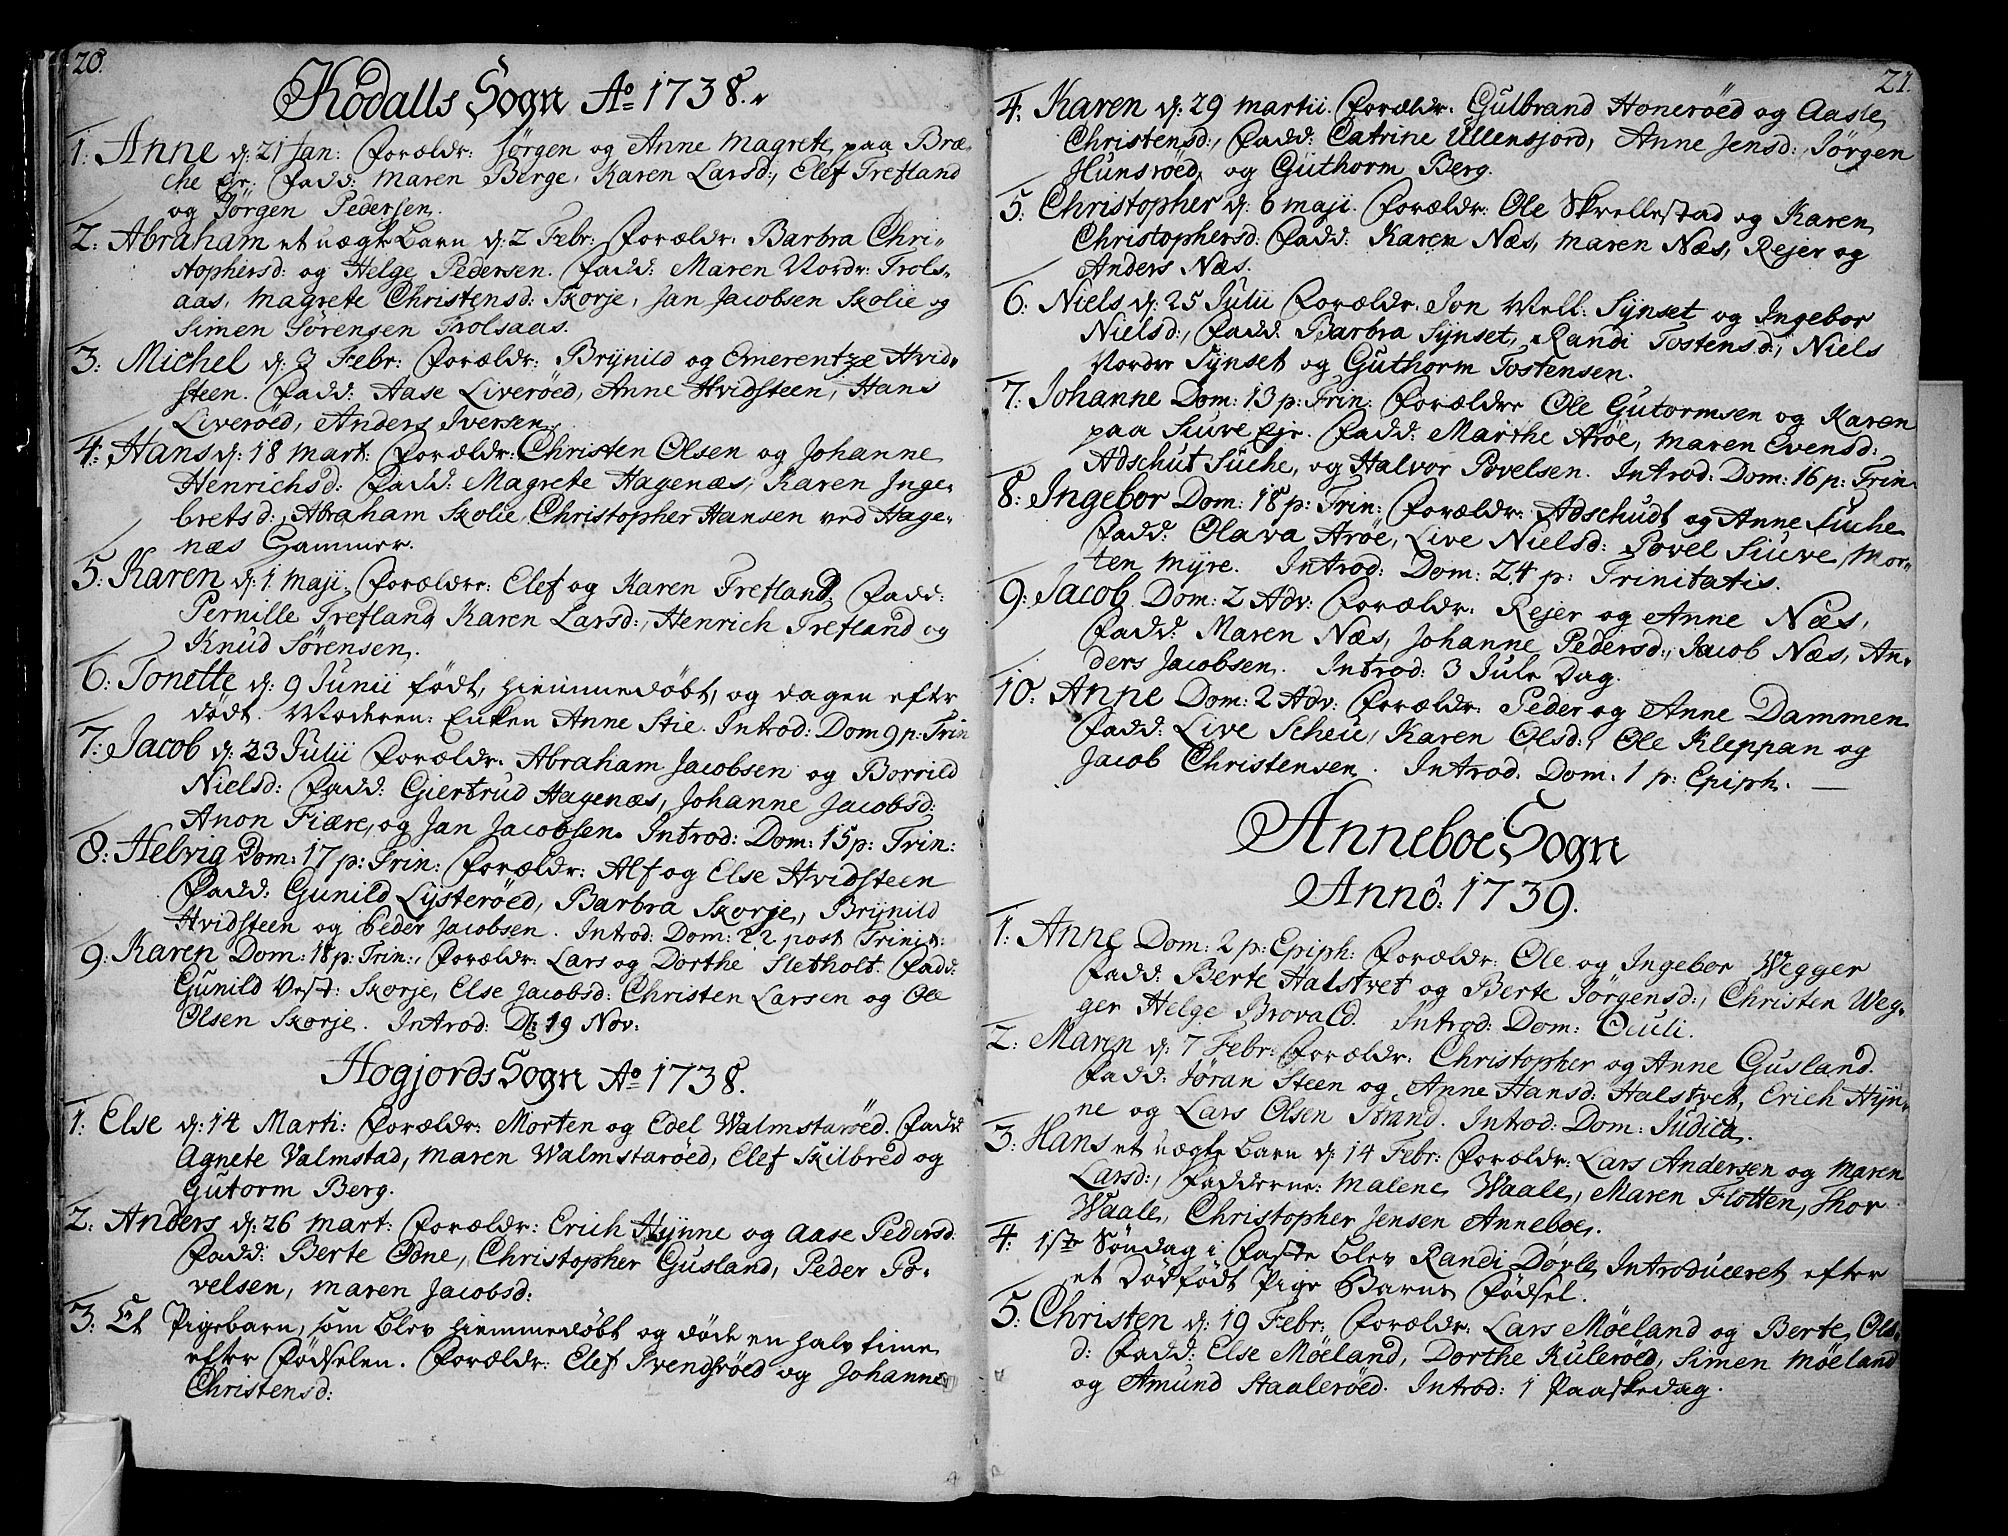 20.
Kodalls Sogn Ao 1738.
1: Anne d: 21 Jan: Forældr: Jørgen og Anne Magrete paa Bræ-
che Ejr: Fadd: Maren Berge, Karen Larsd:, Elef Trefland
og Jørgen Pedersen.
2: Abraham et uægte Barn d: 2 Febr: Forældr: Barbra Chri-
stophersd: og Helge Pedersen. Fadd: Maren Nordr: Trols-
aas, Magrete Christensd: Skorje, Jan Jacobsen Skolie og
Simen Sørensen Trolsaas.
3: Michel d: 3 Febr: Forældr: Brynild og Emerentze Hvid-
steen. Fadd: Aase Liverøed, Anne Hvidsteen, Hans
Liverøed, Anders Iversen.
4: Hans d: 18 Mart: Forældr: Christen Olsen og Johanne
Henrichsd: Fadd: Magrete Hagenæs, Karen Inge-
bretsd:, Abraham Skolie, Christopher Hansen ved Hage-
næs Hammer.
5: Karen d: 1 Maji, Forældre: Elef og Karen Trefland, Fadd:
Pernille Trefland, Karen Larsd:, Henrich Trefland og
Knud Sørensen.
6: Tonette d: 9 Junii født, hiemmedøbt, og dagen efter
dødt. Moderen: Enken Anne Stie. Introd: Dom 9 p: Trin
7: Jacob d: 23 Julii Forældr: Abraham Jacobsen og Borrild
Nielsd: Fadd: Giertrud Hagenæs, Johanne Jacobsd:
Anon Fiære, og Jan Jacobsen. Introd: Dom: 15 p: Trin:
8: Helvig Dom: 17 p: Trin: Forældr: Alf og Else Hvidsteen
Fadd: Gunild Lysterøed, Barbra Skorje, Brynild
Hvidsteen og Peder Jacobsen. Introd: Dom: 22 post Trinit:
9: Karen Dom: 18 p: Trin:, Forældr: Lars og Dorthe Sletholt. Fadd:
Gunild Vest: Skorje, Else Jacobsd: Christen Larsen og Ole
Olsen Skorje. Introd: D: 19 Nov:
Hogjords Sogn Ao 1738.
1: Else d: 14 Marti: Forældr: Morten og Edel Walmstarøed. Fadd:
Agnete Valmstad, Maren Walmstarøed, Elef Skilbred og
Gutorm Berg.
2: Anders d: 26 Mart: Forældr: Erich Hynne og Aase Pedersd:
Fadd: Berte Odne, Christopher Gusland, Peder Po-
velsen, Maren Jacobsd:
3: Et Pigebarn, som blev hiemmedøbt og døde en halv time
efter Fødselen. Forældr: Elef Svendsrøed og Johanne
Christensd:
21.
4: Karen d: 29 Martii. Forældr: Gulbrand Honerøed og Aasle
Christensd:, Fadd: Catrine Ullensjord, Anne Jensd:, Jørgen
Hunsrøed, og Guthorm Berg.
5: Christopher d: 6 Maji. Forældr: Ole Skrellestad og Karen
Christophersd: Fadd: Karen Næs, Maren Næs, Rejer og
Anders Næs.
6: Niels d: 25 Julii Forældr: Jon Mell: Synset og Ingebor
Nielsd:, Fadd: Barbra Synset, Randi Tostensd:, Niels
Nordre Synset og Guthorm Tostensen.
7: Johanne Dom: 13 p: Trin: Forældre Ole Gutormsen og Karen
paa Siuve Ejr. Fadd: Marthe Arøe, Maren Evensd:
Adschut Suche, og Halvor Povelsen. Introd: Dom: 16 p: Trin.
8: Ingebor Dom: 18 p: Trin: Forældr: Adschudt og Anne Suche
Fadd: Olava Arøe, Live Nielsd: Povel Siuve, Mor-
ten Myre. Introd: Dom: 24 p: Trinitatis.
9: Jacob Dom: 2 Adv: Forældr: Rejer og Anne Næs,
Fadd: Maren Næs, Johanne Pedersd:, Jacob Næs, An-
ders Jacobsen. Introd: 3 Jule Dag.
10: Anne Dom: 2 Adv: Forældr: Peder og Anne Dammen
Fadd: Live Scheie, Karen Olsd:, Ole Kleppan og
Jacob Christensen. Introd: Dom: 1 p: Epiph. —
Anneboe Sogn
Anno: 1739.
1: Anne Dom: 2 p: Epiph: Forældr: Ole og Ingebor Wegger
Fadd: Berte Halstvet og Berte Jørgensd:, Christen Weg-
ger Helge Brovald. Introd: Dom: Oculi.
2: Maren d: 7 Febr: Forældr: Christopher og Anne Gusland.
Fadd: Jøran Steen og Anne Hansd: Halstvet, Erich Hyn-
ne og Lars Olsen Strand. Introd: Dom: Judica.
3: Hans et uægte Barn d: 14 Febr: Forældr: Lars Andersen og Maren
Larsd:, Fadderne: Malene Waale, Maren Flotten, Thor
Waale, Christopher Jensen Anneboe.
4: 1ste Søndag i Faste blev Randi Døvle Introduceret efter
et dødfødt Pige Barns Fødsel.
5: Christen d: 19 Febr: Forældr: Lars Møeland og Berte Ols-
d: Fadd: Else Møeland, Dorthe Kulerøed, Simen Møeland
og Amund Staalerøed. Introd: 1 Paaskedag.